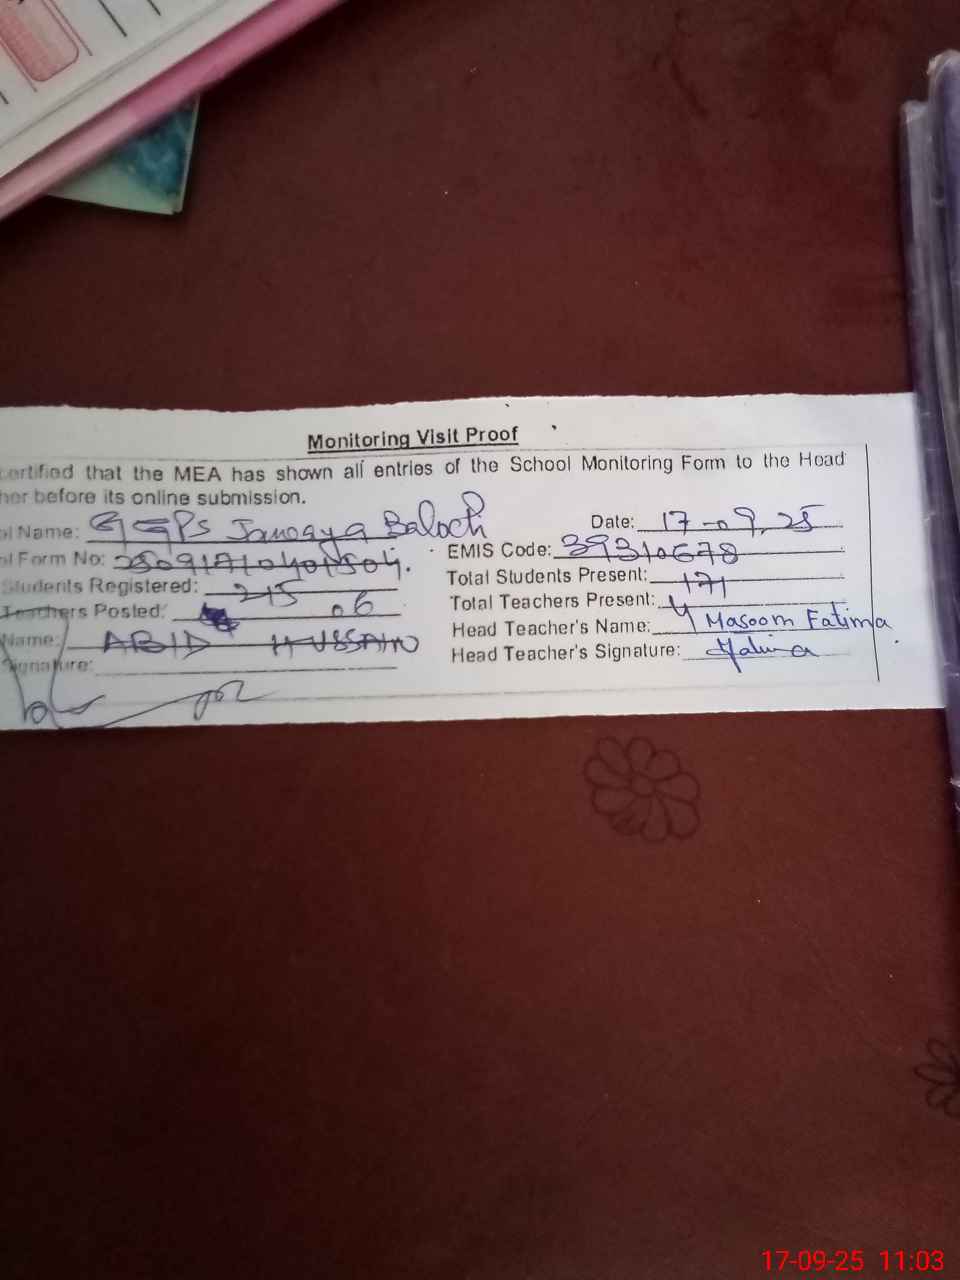 Monitoring Visit Proof
certified that the MEA has shown all entries of the School Monitoring Form to the Head
her before its online submission.
ol Name: GGPS Baloch Date: 17-09-25
ol Form No: EMIS Code: 39310678
Students Registered: 215 Total Students Present: 171
Teachers Posted: 06 Total Teachers Present: 4
Name: ABID HUSSAIN Head Teacher's Name: Masoom Fatima
Signature: Head Teacher's Signature:
17-09-25 11:03